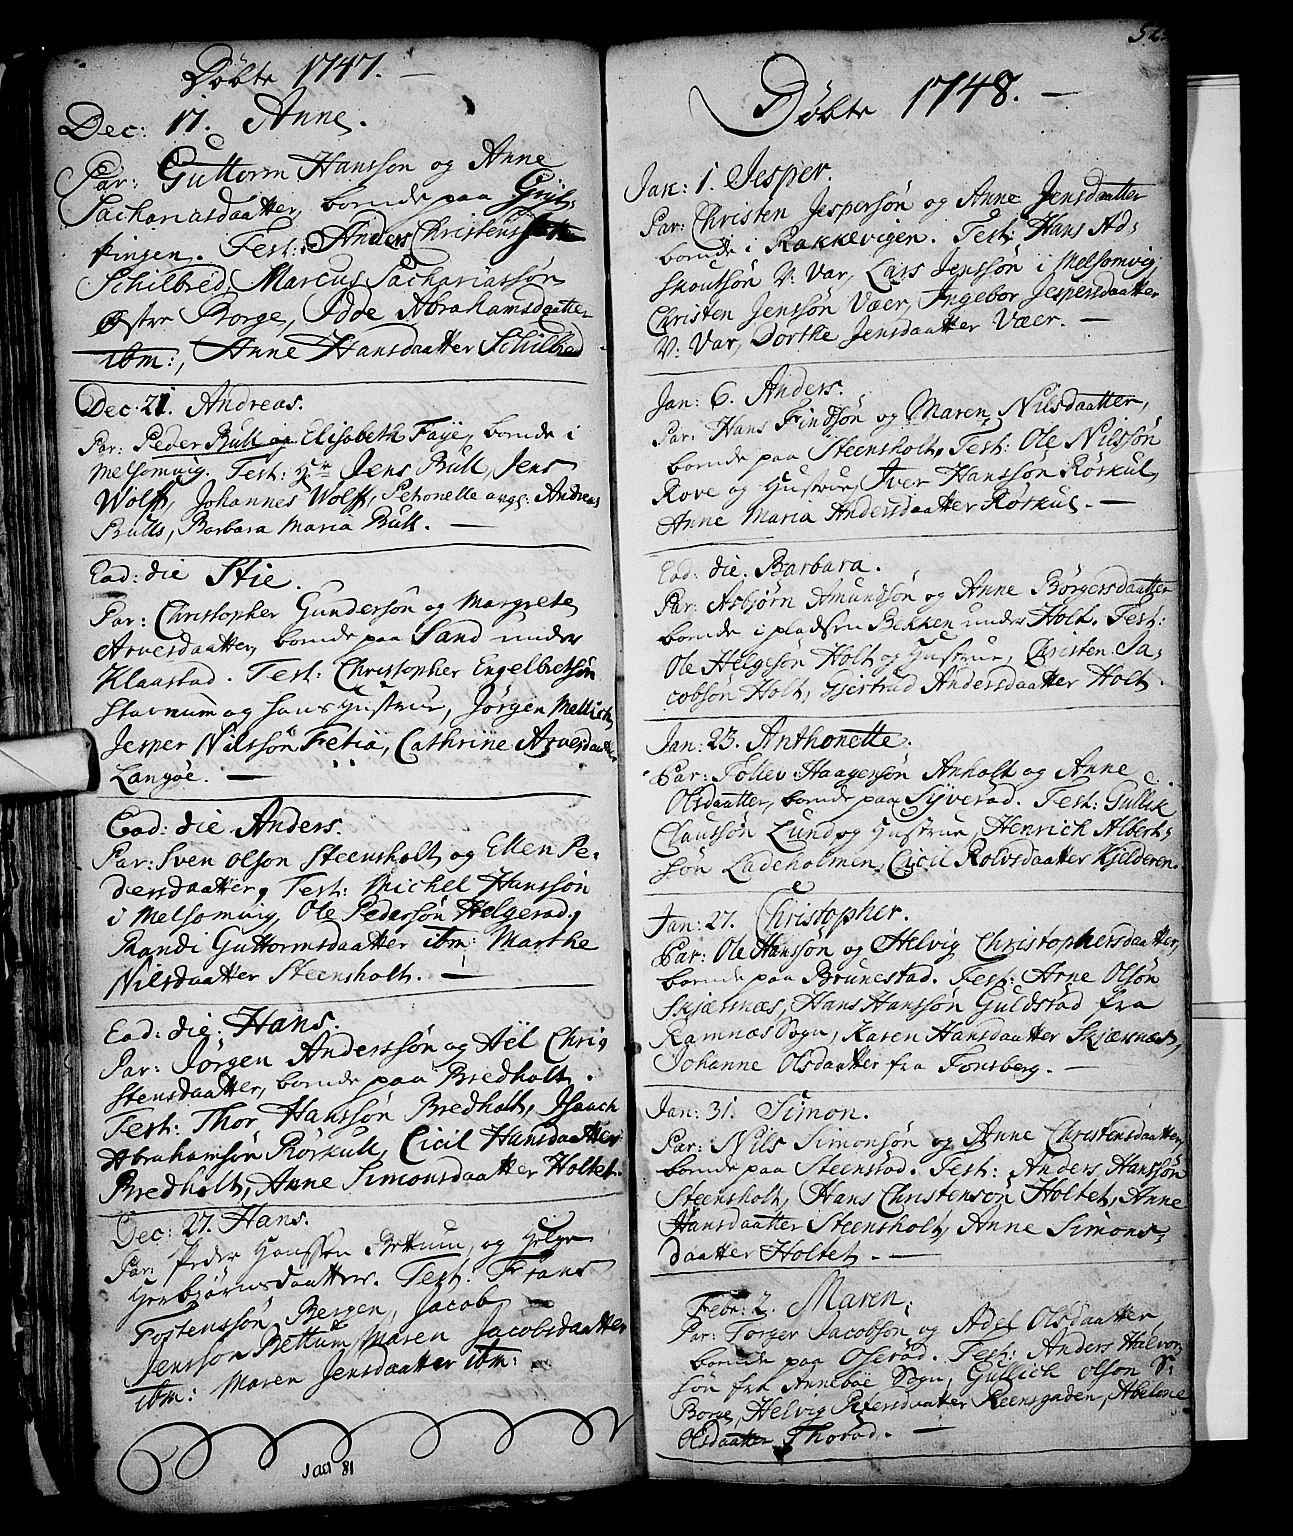 Döbte 1747. —
Dec: 17. Anne.
Par: Guttorm Hanssön og Anne
Sachariasdaatter, boende paa
tingen. Test: Anders Christens
Schilbred, Marcus Sachariassön
Öster Borge, Idde Abrahamsdaatter
ibm:, Anne Hansdaatter Schilbred
Dec: 21. Andreas.
Par: Peder Bull og Elisabeth Faÿe, boende i
Melsomvig. Test: Hr Jens Bull, Jens
Wolff, Johannes Wolff, Petronelle Andreas
Bulls, Barbara Maria Bull. —
Ead: die Stie.
Par: Christopher Gundersön og Margrete
Arvesdaatter, boende paa Sand under
Klaastad. Test: Christopher Engelbretsön
Stavnum og hans Hustrue, Jörgen Mellich,
Jesper Nilssön Fetia, Cathrine Arvesdaatter
Langöe. —
Ead: die Anders.
Par: Sven Olson Steensholt og Ellen Pe-
dersdaatter, Test: Michel Hanssön
i Melsomvig, Ole Pedersön Helgerød,
Randi Guttormsdaatter ibm: Marthe
Nilsdaatter Steensholt. —
Ead: die: Hans.
Par: Jörgen Anderssön og Aël Chri-
stensdaatter, boende paa Bredholt.
Test: Thor Hanssön Bredholt, Isaach
Abrahamsön Rörkull, Cicil Hansdaatter
Bredholt, Anne Simonsdaatter Holtet.
Dec: 27. Hans.
Par: Peder Hanssen Bettum, og Helge
Herbjörnsdaatter. Test: Frans
Tostenssön Bergen, Jacob
Jenssön Bettum, Maren Jacobsdaatter
ibm: Maren Jensdaatter ibm:
81
52.
Döbte 1748. —
Jan: 1. Jesper.
Par: Christen Jespersön og Anne Jensdaatter
boende i Rakkevigen. Test: Hans Ad-
skoutsön V: Vær, Lars Jenssön i Melsomvig
Christen Jenssön Væer, Ingebor Jespersdaatter
V: Vær, Dorthe Jensdaatter Væer. —
Jan: 6. Anders.
Par: Hans Findsön og Maren Nilsdaatter,
boende paa Steensholt, Test: Ole Nilssön
Rove og Hustrue, Iver Hanssön Rörkul,
Anne Maria Andersdaatter Rörkul. —
Ead: die. Barbara.
Par: Asbjörn Amundsön og Anne Börgersdaatter
boende i pladsen Bekken under Holt. Test:
Ole Helgesön Holt og Hustrue, Christen Ja-
cobsön Holt, Giertrud Andersdaatter Holt.
Jan: 23. Anthonette.
Par: Tollev Haagensön Anholt og Anne
Olsdaatter, boende paa Syverød. Test: Gullik
Claussön Lund og Hustrue, Henrich Albert-
sön Ladeholmen, Cicil Rolvsdaatter Kjelderen.
Jan: 27. Christopher.
Par: Ole Hanssön og Helvig Christophersdaatter,
boende paa Brunestad. Test: Arne Olsön
Skjærsnæs, Hans Hanssön Guldstad fra
Ramnæs Sogn, Karen Hansdaatter Skjærsnæs,
Johanne Olsdaatter fra Tonsberg. —
Jan: 31. Simon.
Par: Nils Simonsön og Anne Christensdaatter,
boende paa Steenstad. Test: Anders Hanssön
Steensholt, Hans Christensön Holtet, Anne
Hansdaatter Steensholt, Anne Simons-
daatter Holtet. —
Febr: 2. Maren.
Par: Torger Jacobsön og Adel Olsdaatter
boende paa Oserød. Test: Anders Halvor-
sön fra Anneboe Sogn, Gullich Olson S:
Borge, Helvig Petersdaatter Reensgaden, Abelone
Olsdaatter Thorød. —